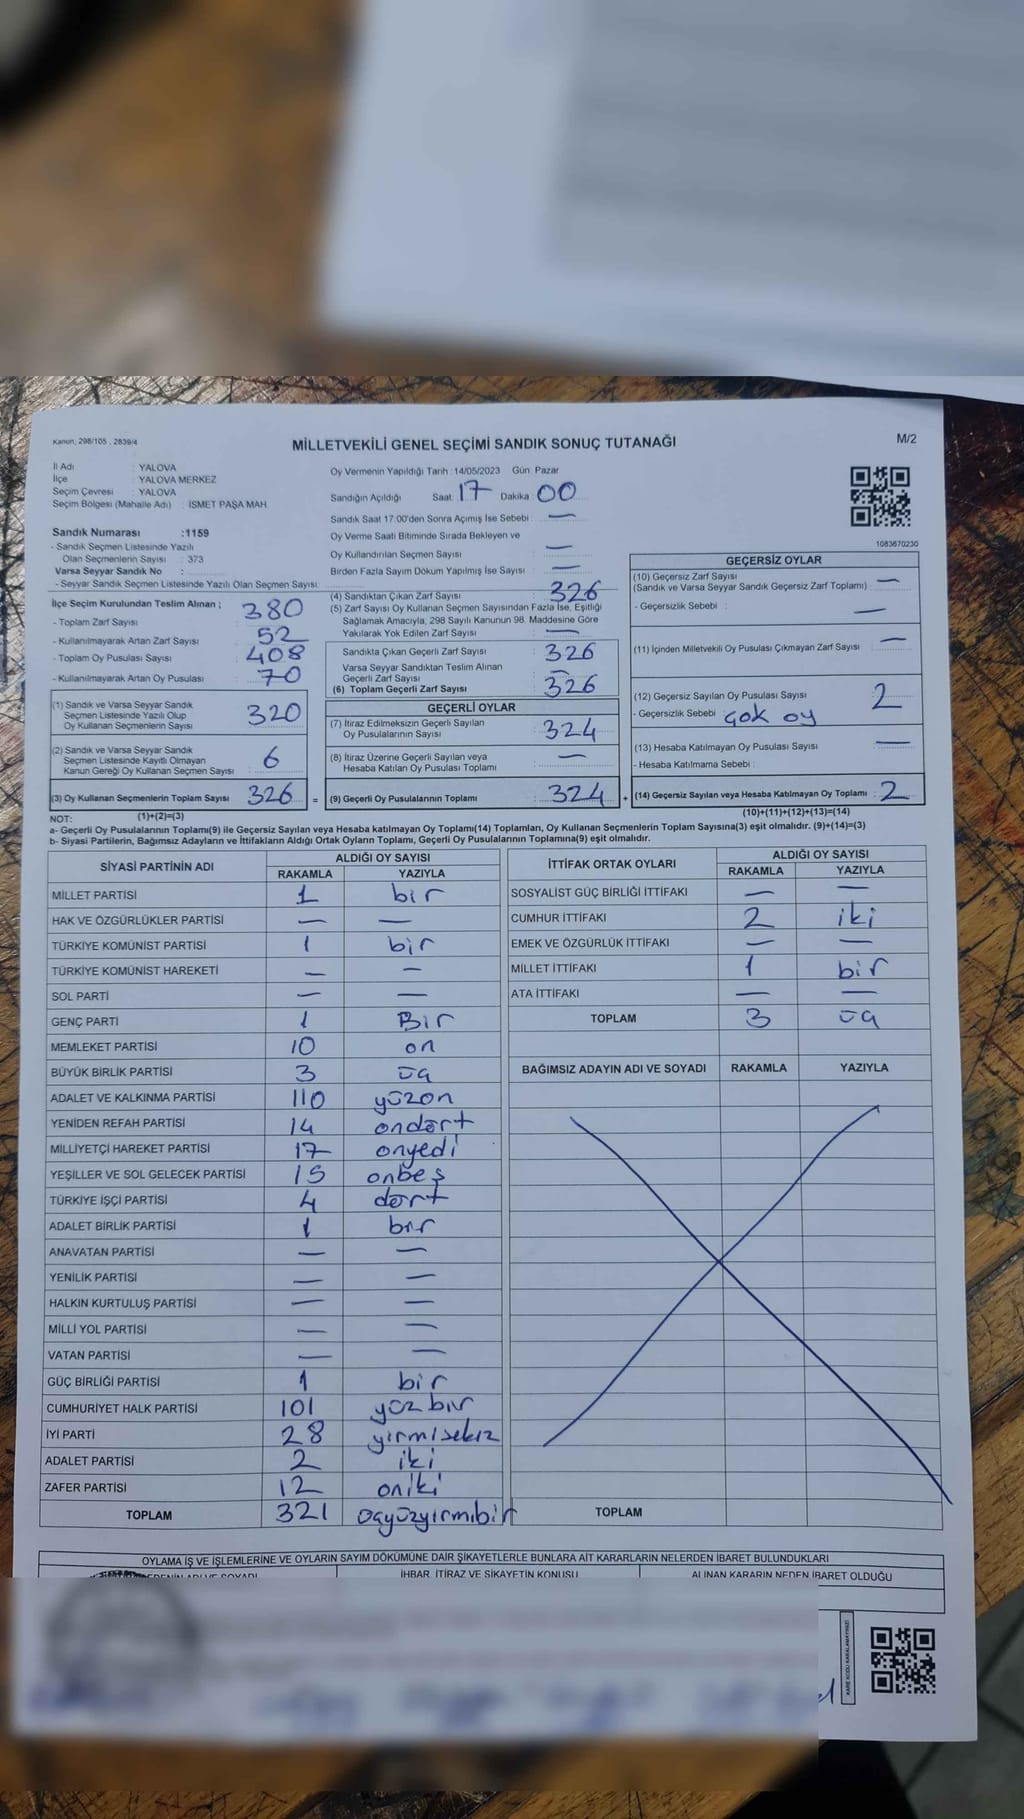 Kanun; 298/105 , 2839/4
MİLLETVEKİLİ GENEL SEÇİMİ SANDIK SONUÇ TUTANAĞI
M/2
İl Adı : YALOVA
İlçe : YALOVA MERKEZ
Seçim Çevresi : YALOVA
Seçim Bölgesi (Mahalle Adı) : İSMET PAŞA MAH.
Oy Vermenin Yapıldığı Tarih :14/05/2023 Gün: Pazar
Sandığın Açıldığı Saat 17 Dakika 00
Sandık Saat 17:00'den Sonra Açımış İse Sebebi : —
Oy Verme Saati Bitiminde Sırada Bekleyen ve
Oy Kullandırılan Seçmen Sayısı : —
Birden Fazla Sayım Döküm Yapılmış İse Sayısı : —
1083670230
Sandık Numarası :1159
- Sandık Seçmen Listesinde Yazılı
Olan Seçmenlerin Sayısı : 373
Varsa Seyyar Sandık No :
- Seyyar Sandık Seçmen Listesinde Yazılı Olan Seçmen Sayısı:
İlçe Seçim Kurulundan Teslim Alınan ;
- Toplam Zarf Sayısı : 380
- Kullanılmayarak Artan Zarf Sayısı : 52
- Toplam Oy Pusulası Sayısı : 408
- Kullanılmayarak Artan Oy Pusulası : 70
(1) Sandık ve Varsa Seyyar Sandık
Seçmen Listesinde Yazılı Olup
Oy Kullanan Seçmenlerin Sayısı 320
(2) Sandık ve Varsa Seyyar Sandık
Seçmen Listesinde Kayıtlı Olmayan
Kanun Gereği Oy Kullanan Seçmen Sayısı 6
(3) Oy Kullanan Seçmenlerin Toplam Sayısı 326 =
(4) Sandıktan Çıkan Zarf Sayısı : 326
(5) Zarf Sayısı Oy Kullanan Seçmen Sayısından Fazla İse, Eşitliği
Sağlamak Amacıyla, 298 Sayılı Kanunun 98. Maddesine Göre
Yakılarak Yok Edilen Zarf Sayısı : —
Sandıkta Çıkan Geçerli Zarf Sayısı : 326
Varsa Seyyar Sandıktan Teslim Alınan
Geçerli Zarf Sayısı : —
(6) Toplam Geçerli Zarf Sayısı : 326
GEÇERLİ OYLAR
(7) İtiraz Edilmeksizin Geçerli Sayılan
Oy Pusulalarının Sayısı : 324
(8) İtiraz Üzerine Geçerli Sayılan veya
Hesaba Katılan Oy Pusulası Toplamı : —
(9) Geçerli Oy Pusulalarının Toplamı : 324 +
GEÇERSİZ OYLAR
(10) Geçersiz Zarf Sayısı
(Sandık ve Varsa Seyyar Sandık Geçersiz Zarf Toplamı) : —
- Geçersizlik Sebebi : —
(11) İçinden Milletvekili Oy Pusulası Çıkmayan Zarf Sayısı : —
(12) Geçersiz Sayılan Oy Pusulası Sayısı : 2
- Geçersizlik Sebebi : çok oy
(13) Hesaba Katılmayan Oy Pusulası Sayısı : —
- Hesaba Katılmama Sebebi :
(14) Geçersiz Sayılan veya Hesaba Katılmayan Oy Toplamı : 2
NOT: (1)+(2)=(3) (10)+(11)+(12)+(13)=(14)
a- Geçerli Oy Pusulalarının Toplamı(9) ile Geçersiz Sayılan veya Hesaba katılmayan Oy Toplamı(14) Toplamları, Oy Kullanan Seçmenlerin Toplam Sayısına(3) eşit olmalıdır. (9)+(14)=(3)
b- Siyasi Partilerin, Bağımsız Adayların ve İttifakların Aldığı Ortak Oyların Toplamı, Geçerli Oy Pusulalarının Toplamına(9) eşit olmalıdır.
SİYASİ PARTİNİN ADI ALDIĞI OY SAYISI
RAKAMLA YAZIYLA
MİLLET PARTİSİ 1 bir
HAK VE ÖZGÜRLÜKLER PARTİSİ — —
TÜRKİYE KOMÜNİST PARTİSİ 1 bir
TÜRKİYE KOMÜNİST HAREKETİ — —
SOL PARTİ — —
GENÇ PARTİ 1 Bir
MEMLEKET PARTİSİ 10 on
BÜYÜK BİRLİK PARTİSİ 3 üç
ADALET VE KALKINMA PARTİSİ 110 yüzon
YENİDEN REFAH PARTİSİ 14 ondört
MİLLİYETÇİ HAREKET PARTİSİ 17 onyedi
YEŞİLLER VE SOL GELECEK PARTİSİ 15 onbeş
TÜRKİYE İŞÇİ PARTİSİ 4 dört
ADALET BİRLİK PARTİSİ 1 bir
ANAVATAN PARTİSİ — —
YENİLİK PARTİSİ — —
HALKIN KURTULUŞ PARTİSİ — —
MİLLİ YOL PARTİSİ — —
VATAN PARTİSİ — —
GÜÇ BİRLİĞİ PARTİSİ 1 bir
CUMHURİYET HALK PARTİSİ 101 yüzbir
İYİ PARTİ 28 yirmisekiz
ADALET PARTİSİ 2 iki
ZAFER PARTİSİ 12 oniki
TOPLAM 321 üçyüzyirmibir
İTTİFAK ORTAK OYLARI ALDIĞI OY SAYISI
RAKAMLA YAZIYLA
SOSYALİST GÜÇ BİRLİĞİ İTTİFAKI — —
CUMHUR İTTİFAKI 2 iki
EMEK VE ÖZGÜRLÜK İTTİFAKI — —
MİLLET İTTİFAKI 1 bir
ATA İTTİFAKI — —
TOPLAM 3 üç
BAĞIMSIZ ADAYIN ADI VE SOYADI RAKAMLA YAZIYLA
TOPLAM
OYLAMA İŞ VE İŞLEMLERİNE VE OYLARIN SAYIM DÖKÜMÜNE DAİR ŞİKAYETLERLE BUNLARA AİT KARARLARIN NELERDEN İBARET BULUNDUKLARI
İHBAR, İTİRAZ VE ŞİKAYETİN KONUSU
ALINAN KARARIN NEDEN İBARET OLDUĞU